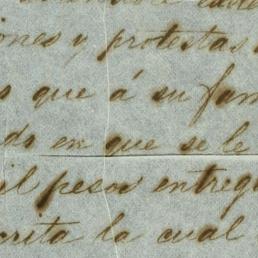 iones y protestas
s que á su fam
do en que se le
il pesos entreg
crita la cual